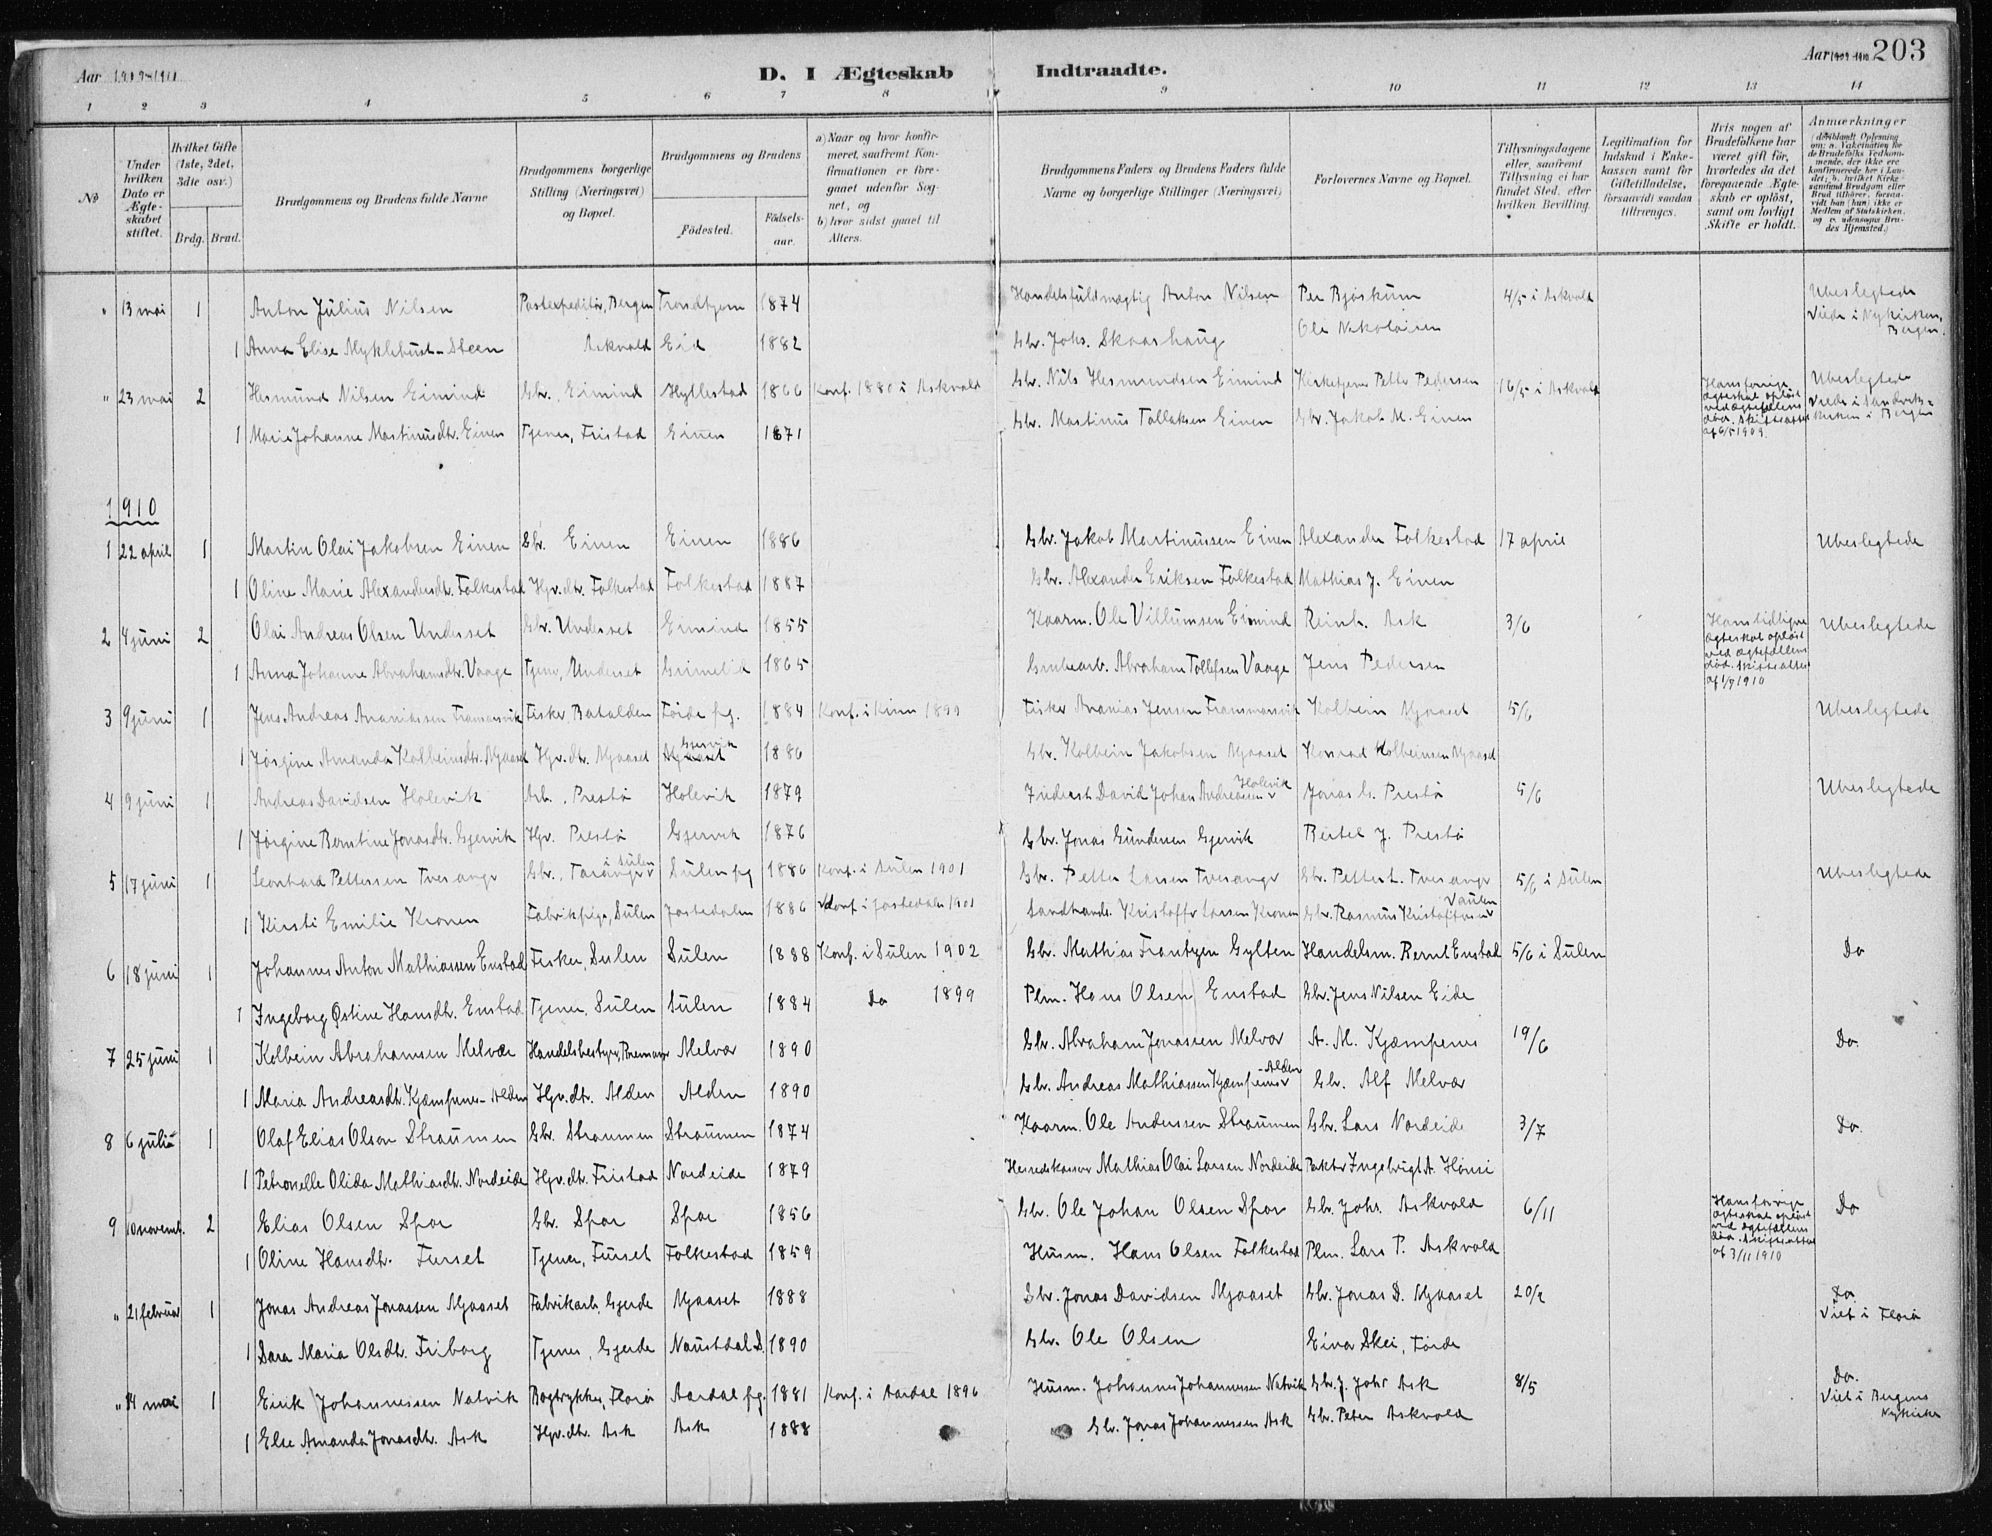 Aar 1909-1910
D. I Ægteskab Indtraadte.
Aar 1909-1910 203
1 2 3 4 5 6 7 8 9 10 11 12 13 14
No
Under hvilken Dato er Ægteskabet stiftet.
Hvilket Gifte (1ste, 2det, 3die osv.)
Brdg. Brud.
Brudgommens og Brudens fulde Navne
Brudgommens borgerlige Stilling (Næringsvei) og Bopæl.
Brudgommens og Brudens
Födested.
Födselsaar.
a) Naar og hvor konfirmeret, saafremt Konfirmationen er foregaaet udenfor Sognet, og b) hvor sidst gaaet til Alters.
Brudgommens Faders og Brudens Faders fulde Navne og borgerlige Stillinger (Næringsvei)
Forlovernes Navne og Bopæl.
Tillysningsdagene eller, saafremt Tillysning ei har fundet Sted, efter hvilken Bevilling.
Legitimation for Indskud i Enkekassen samt for Giftetilladelse, forsaavidt saadan tiltrænges.
Hvis nogen af Brudefolkene har været gift för, hvorledes da det foregaaende Ægteskab er oplöst, samt om lovligt Skifte er holdt.
Anmærkninger
" 13 mai 1 Anton Julius Nilsen Postexpeditör, Bergen Trondhjem 1874 Handelsfuldmægtig Anton Nilsen Per Bjöskum 4/5 i Askvold Ubeslegtede
Viede i Nykirken, Bergen.
1 Anna Elise Myklebust-Steen Askvold Eid 1882 Gbr. Johs. Skaashaug Ole Nikolaisen
" 23 mai 2 Hesmund Nilsen Eimind Gbr., Eimind Hyllestad 1866 Konf. 1880 i Askvold Gbr. Nils Hesmundsen Eimind Kirketjener Petter Pedersen 16/5 i Askvold Hans forrige ægteskab oplöst ved ægtefællens död. Skifteattest af 6/5 1909. Ubeslegtede
Viede i Sandvikskirken i Bergen
1 Marie Johanne Martinusdtr. Einen Tjener, Fristad Einen 1871 Gbr. Martinus Tollaksen Einen Gbr. Jakob M. Einen
1910
1 22 april 1 Martin Olai Jakobsen Einen Gbr. Einen Einen 1886 Gbr. Jakob Martinussen Einen Alexander Folkestad 17 april Ubeslegtede
1 Oline Marie Alexandersdtr. Folkestad Hgv.dtr. Folkestad Folkestad 1887 Gbr. Alexander Eriksen Folkestad Mathias J. Einen
2 4 juni 2 Olai Andreas Olsen Underset Gbr. Underset Eimind 1855 Kaarm. Ole Villumsen Eimind Reinh. Ask 3/6 Hans tidligere ægteskab oplöst ved ægtefællens död. Skifteattest af 1/9 1910 Ubeslegtede
1 Anna Johanne Abrahamsdtr. Vaage Tjener, Underset Grimelid 1865 Grubearb. Abraham Tollefsen Vaage Jens Pedersen
3 9 juni 1 Jens Andreas Ananiassen Fransmansvik Fisker Batalden Förde pg. 1884 Konf. i Kinn 1899 Fisker Ananias Jensen Fransmansvik Kolbein Mjaaset 5/6 Ubeslegtede
1 Jörgine Amanda Kolbeinsdtr. Mjaaset Hgv.dtr. Mjaaset Gjervik 1886 Gbr. Kolbein Jakobsen Mjaaset Konrad Kolbeinsen Mjaaset
4 9 juni 1 Andreas Davidsen Holevik Arb., Prestö Holevik 1879 Inderst David Johan Andreassen Holevik Jonas G. Prestö 5/6 Ubeslegtede
1 Jörgine Berntine Jonasdtr. Gjervik Hgv. Prestö Gjervik 1876 Gbr. Jonas Gundersen Gjervik Bertel J. Prestö
5 17 juni 1 Leonhard Pettersen Tveranger Gbr., Taranger i Sulen Sulen pg 1886 Konf. i Sulen 1901 Gbr. Petter Larsen Tveranger Gbr. Petter L. Tveranger 5/6 i Sulen Ubeslegtede
1 Kirsti Emilie Kronen Fabrikpige, Sulen Jostedalen 1886 Konf. i Jostedalen 1901 Landhandl. Kristoffer Larsen Kronen Gbr. Rasmus Kristoffersen
6 18 juni 1 Johannes Anton Mathiassen Enstad Fisker, Sulen Sulen 1888 Konf. i Sulen 1902 Gbr. Mathias Frantzen Gylten Handelsm. Bernt Enstad 5/6 i Sulen Do
1 Ingeborg Østine Hansdtr. Enstad Tjener, Sulen Sulen 1884 Do 1899 Plm. Hans Olsen Enstad Gbr. Jens Nilsen Eide
7 25 juni 1 Kolbein Abrahamsen Melvær Handelsbestyrer, Melvær 1890 Gbr. Abraham Jonassen Melvær A. M. Kjæmpenes 19/6 Do.
1 Maria Andreasdtr. Kjæmpenes-Alden Hgv.dtr. Alden Alden 1890 Gbr. Andreas Mathiassen Kjæmpenes-Alden Gbr. Alf Melvær
8 6 juli 1 Olaf Elias Olson Straumen Gbr. Straumen Straumen 1874 Kaarm. Ole Anderssen Straumen Gbr. Lars Nordeide 3/7 Do.
1 Petronelle Olida Mathiasdtr. Nordeide Hgv.dtr. Fristad Nordeide 1879 Herredskasser Mathias Olai Larsen Nordeide Poktr Ingebrigt A. Hönsi
9 10 novemb. 2 Elias Olsen Spor Gbr. Spor Spor 1856 Gbr. Ole Johan Olsen Spor Gbr. Johs. Askvold 6/11 Hans forrige ægteskab oplöst ved ægtefællens död. Skifteattest af 3/11 1910 Do
1 Oline Hansdtr. Furset Tjener, Furset Folkestad 1859 Husm. Hans Olsen Folkestad Plm. Lars P. Askvold
" 21 februar 1 Jonas Andreas Jonassen Mjaaset Fabrikarb., Gjerde Mjaaset 1888 Gbr. Jonas Davidsen Mjaaset Gbr. Jonas D. Mjaaset 20/2 Do.
Viet i Florö
1 Sara Maria Olsdtr. Friborg Tjener, Gjerde Naustdal S. 1890 Gbr. Ole Olsen Einar Skei, Förde
" 14 mai 1 Eirik Johannessen Natvik Bogtrykker, Florö Aardal pg. 1881 Konf. i Aardal 1896 Husm. Johannes Johannessen Natvik Gbr. J. Johs Ask 8/5 Do.
Viet i Bergens Nykirke
1 Else Amanda Jonasdtr. Ask Hgv.dtr. Ask Ask 1888 Gbr. Jonas Johannessen Ask Gbr. Peter Askvold